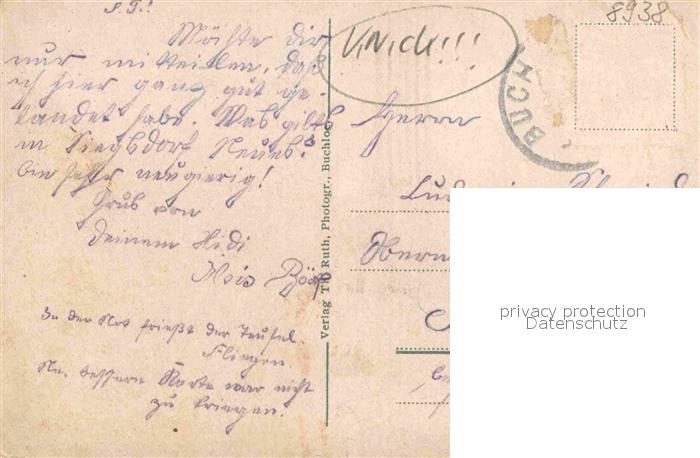 L. F.!
Möchte dir
nur mitteilen, daß
ich hier ganz gut ge-
landet habe. Was gibts
in Siegsdorf Neues?
bin sehr neugierig!
Gruß von
deinem
Alois
In der Not frießt der Teufel
Fliegen.
Ne. bessere Karte war nicht
zu kriegen.
Verlag Th. Ruth, Photogr., Buchloe
8938
BUCH
Herrn
privacy protection
Datenschutz